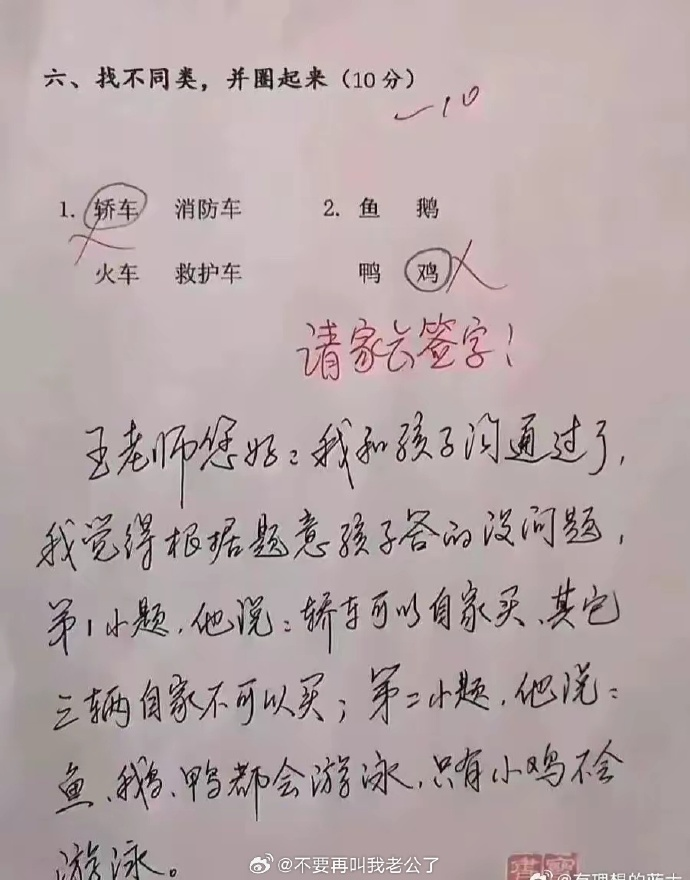 六、找不同类，并圈起来（10分）
-10
1. 轿车 消防车 2. 鱼 鹅
火车 救护车 鸭 鸡
请家长签字！
王老师您好：我和孩子沟通过了，
我觉得根据题意孩子答的没问题，
第1小题，他说：轿车可以自家买、其它
三辆自家不可以买；第二小题，他说：
鱼、鹅、鸭都会游泳，只有小鸡不会
游泳。
@不要再叫我老公了